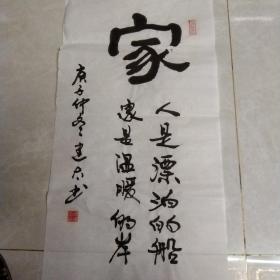 家
人是漂泊的船
家是温暖的岸
庚子仲冬建东书